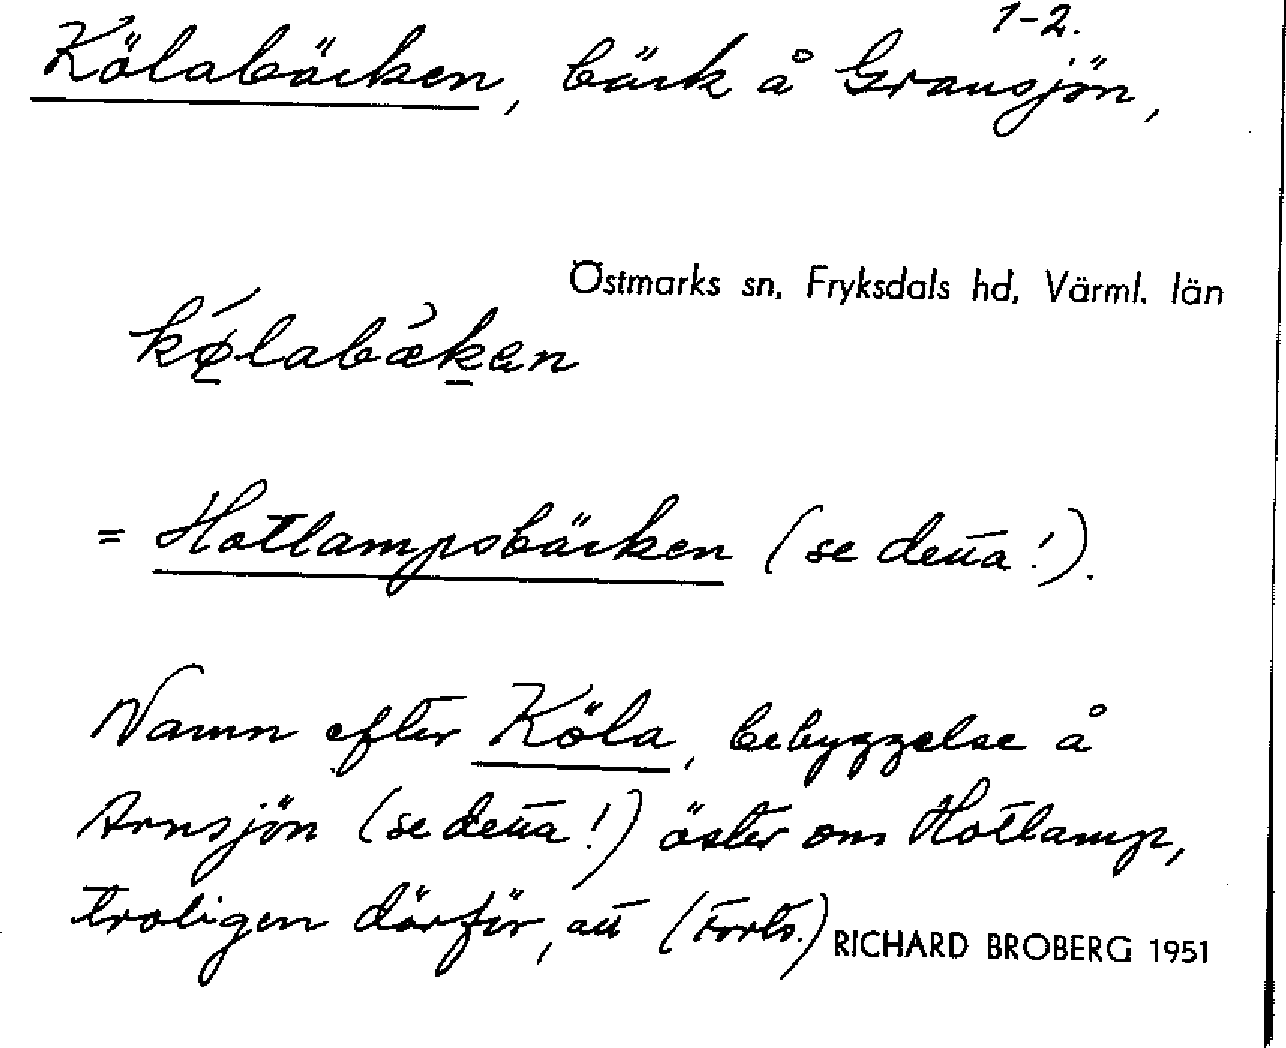 1-2.
Kölabäcken, bäck å Gransjön,
Östmarks sn, Fryksdals hd, Värml. län
kǿ̱labæ̀ḵen
= Hotlampsbäcken (se detta!).
Namn efter Köla, bebyggelse å
Arnsjön (se detta!) öster om Hotlamp,
troligen därför, att (Forts.) RICHARD BROBERG 1951